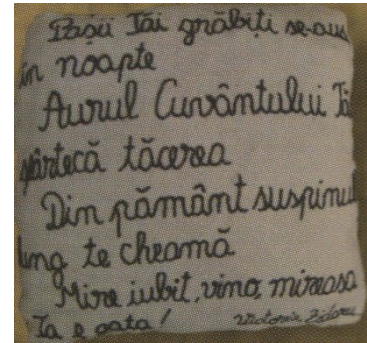 Pașii Tăi grăbiți se-aud
in noapte
Aurul Cuvântului Tă
spârtecă tăcerea
Din pământ suspinul
lung te cheamă
Mire iubit, vino, mireasa
Ta e gata!
Victoria Zidaru